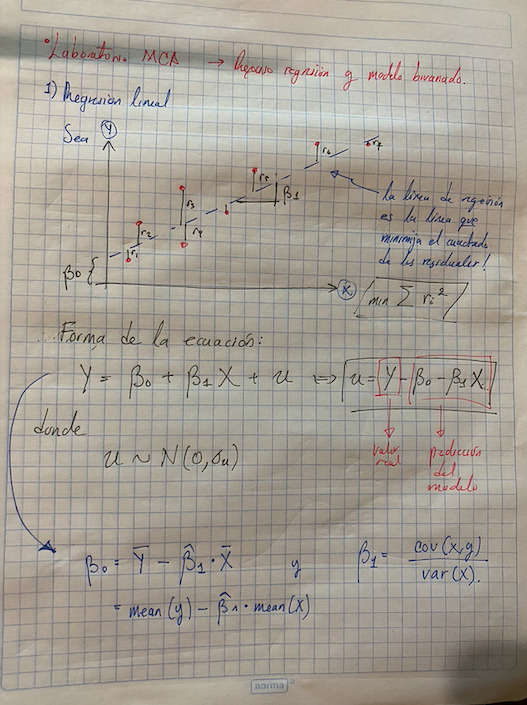 • Laboratorio MCA → Repaso regresión y modelo bivariado.
1) Regresión lineal
Sea Y
r1 r2 r3 r4 r5 r6 r7
β1
β0 {
X
la línea de regresión
es la línea que
minimiza el cuadrado
de los residuales!
min Σ ri²
Forma de la ecuación:
Y = β0 + β1 X + u ⟺ u = Y - β0 - β1 X
donde
valor
real
predicción
del
modelo
u ~ N(0, σu)
β0 = Ȳ - β̂1 · X̄ y β1 = cov(x,y) / var(x).
= mean(y) - β̂1 · mean(x)
norma